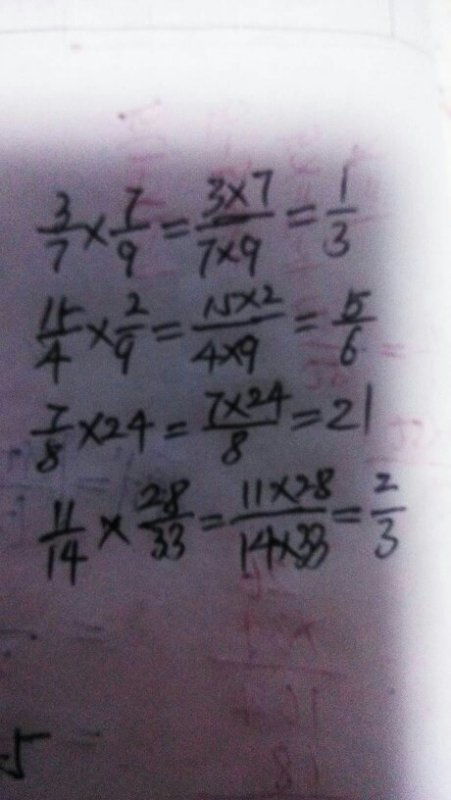 3/7 × 7/9 = 3×7/7×9 = 1/3
15/4 × 2/9 = 15×2/4×9 = 5/6
7/8 × 24 = 7×24/8 = 21
11/14 × 28/33 = 11×28/14×33 = 2/3